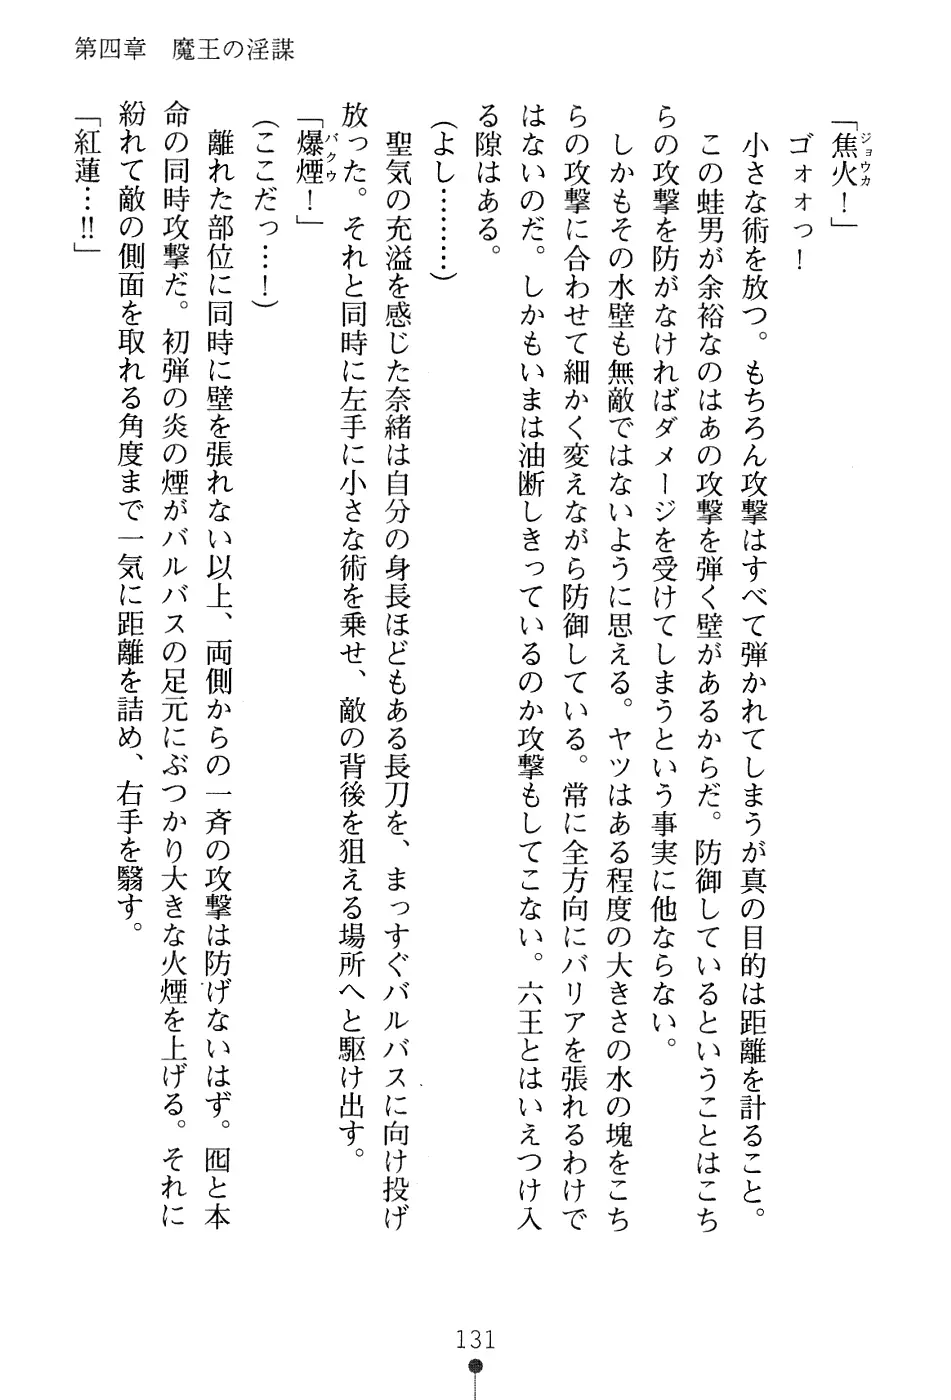 第四章　魔王の淫謀
「焦火！」
ジョウカ
ゴォォっ！
小さな術を放つ。もちろん攻撃はすべて弾かれてしまうが真の目的は距離を計ること。
この蛙男が余裕なのはあの攻撃を弾く壁があるからだ。防御しているということはこち
らの攻撃を防がなければダメージを受けてしまうという事実に他ならない。
しかもその水壁も無敵ではないように思える。ヤツはある程度の大きさの水の塊をこち
らの攻撃に合わせて細かく変えながら防御している。常に全方向にバリアを張れるわけで
はないのだ。しかもいまは油断しきっているのか攻撃もしてこない。六王とはいえつけ入
る隙はある。
（よし………）
聖気の充溢を感じた奈緒は自分の身長ほどもある長刀を、まっすぐバルバスに向け投げ
放った。それと同時に左手に小さな術を乗せ、敵の背後を狙える場所へと駆け出す。
「爆煙！」
バクウ
（ここだっ…！）
離れた部位に同時に壁を張れない以上、両側からの一斉の攻撃は防げないはず。囮と本
命の同時攻撃だ。初弾の炎の煙がバルバスの足元にぶつかり大きな火煙を上げる。それに
紛れて敵の側面を取れる角度まで一気に距離を詰め、右手を翳す。
「紅蓮…!!」
131